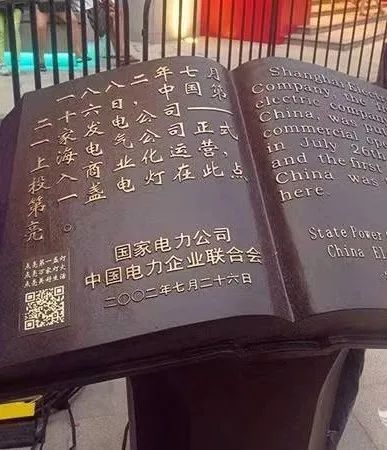 一八八二年七月
二十六日中国第
一家发电公司——
上海电气公司正式
投入商业化运营，
第一盏电灯在此点
亮。
国家电力公司
中国电力企业联合会
二〇〇二年七月二十六日
点亮第一盏灯
点亮万家灯火
点亮美好生活
Shanghai Elect
Company, the f
electric compan
China, was pu
commercial ope
in July 26th
and the first
China was
here.
State Power
China El